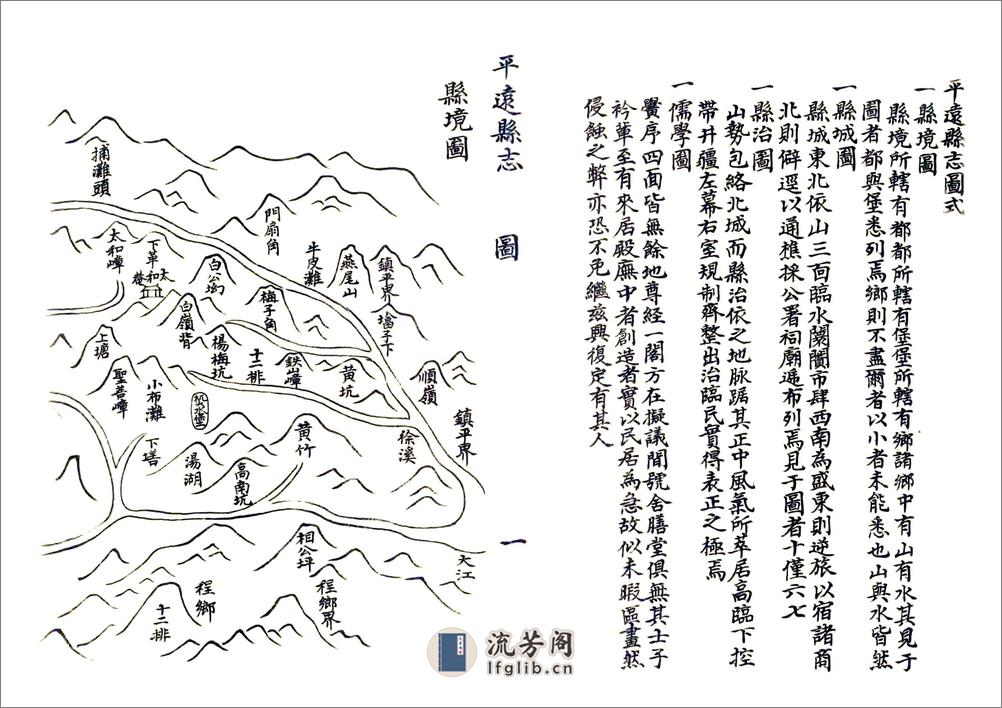 平遠縣志圖式
一縣境圖
縣境所轄有都都所轄有堡堡所轄有鄉諸鄉中有山有水其見于
圖者都與堡悉列焉鄉則不盡爾者以小者未能悉也山與水皆然
一縣城圖
縣城東北依山三面臨水闤闠市肆西南為盛東則逆旅以宿諸商
北則僻逕以通樵採公署祠廟遞布列焉見于圖者十僅六七
一縣治圖
山勢包絡北城而縣治依之地脉踞其正中風氣所萃居高臨下控
帶井疆左幕右室規制齊整出治臨民實得表正之極焉
一儒學圖
黌序四面皆無餘地尊経一閣方在擬議聞號舍膳堂俱無其士子
衿輩至有來居殿廡中者創造者實以民居為急故似未暇區畫然
侵蝕之弊亦恐不免繼兹興復定有其人
平遠縣志
圖
一
縣境圖
捕灘頭
門扇角
牛皮灘
燕尾山
鎮平界
墦子下
太和嶂
下革
太和菴
白公㘭
梅子角
白嶺背
楊梅坑
十二排
鉄山嶂
黄坑
順嶺
鎮平界
上塘
聖善嶂
小布灘
下墡
湯湖
高南坑
黄竹
徐溪
大江
相公坪
程鄉
程鄉界
十二排
流芳阁
lfglib.cn